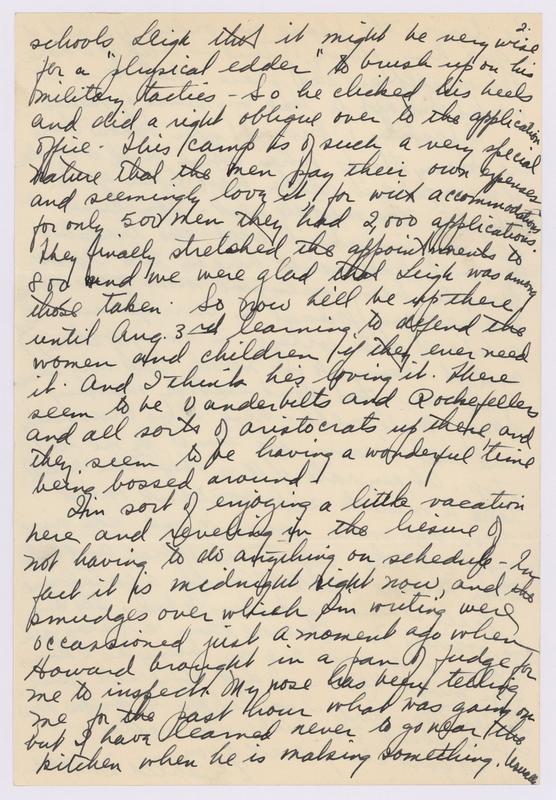 2.
schools Leigh that it might be very wise
for a "physical edder" to brush up on his
military tactics - So he clicked his heels
and did a right oblique over to the application
office. This camp is of such a very special
nature that the men pay their own expenses
and seemingly love it, for with accommodations
for only 500 men they had 2,000 applications.
They finally stretched the appointments to
800 and we were glad that Leigh was among
those taken. So now he'll be up there
until Aug. 3rd learning to defend the
women and children if they ever need
it. And I think he's loving it. There
seem to be Vanderbilts and Rockefellers
and all sorts of aristocrats up there, and
they seem to be having a wonderful time
being bossed around.
I'm sort of enjoying a little vacation
here and reveling in the liesure of
not having to do anything on schedule - In
fact it is midnight right now, and the
smudges over which I'm writing were
occasioned just a moment ago when
Howard brought in a pan of fudge for
me to inspect. My nose has been telling
me for the past hour what was going on
but I have learned never to go near the
kitchen when he is making something.